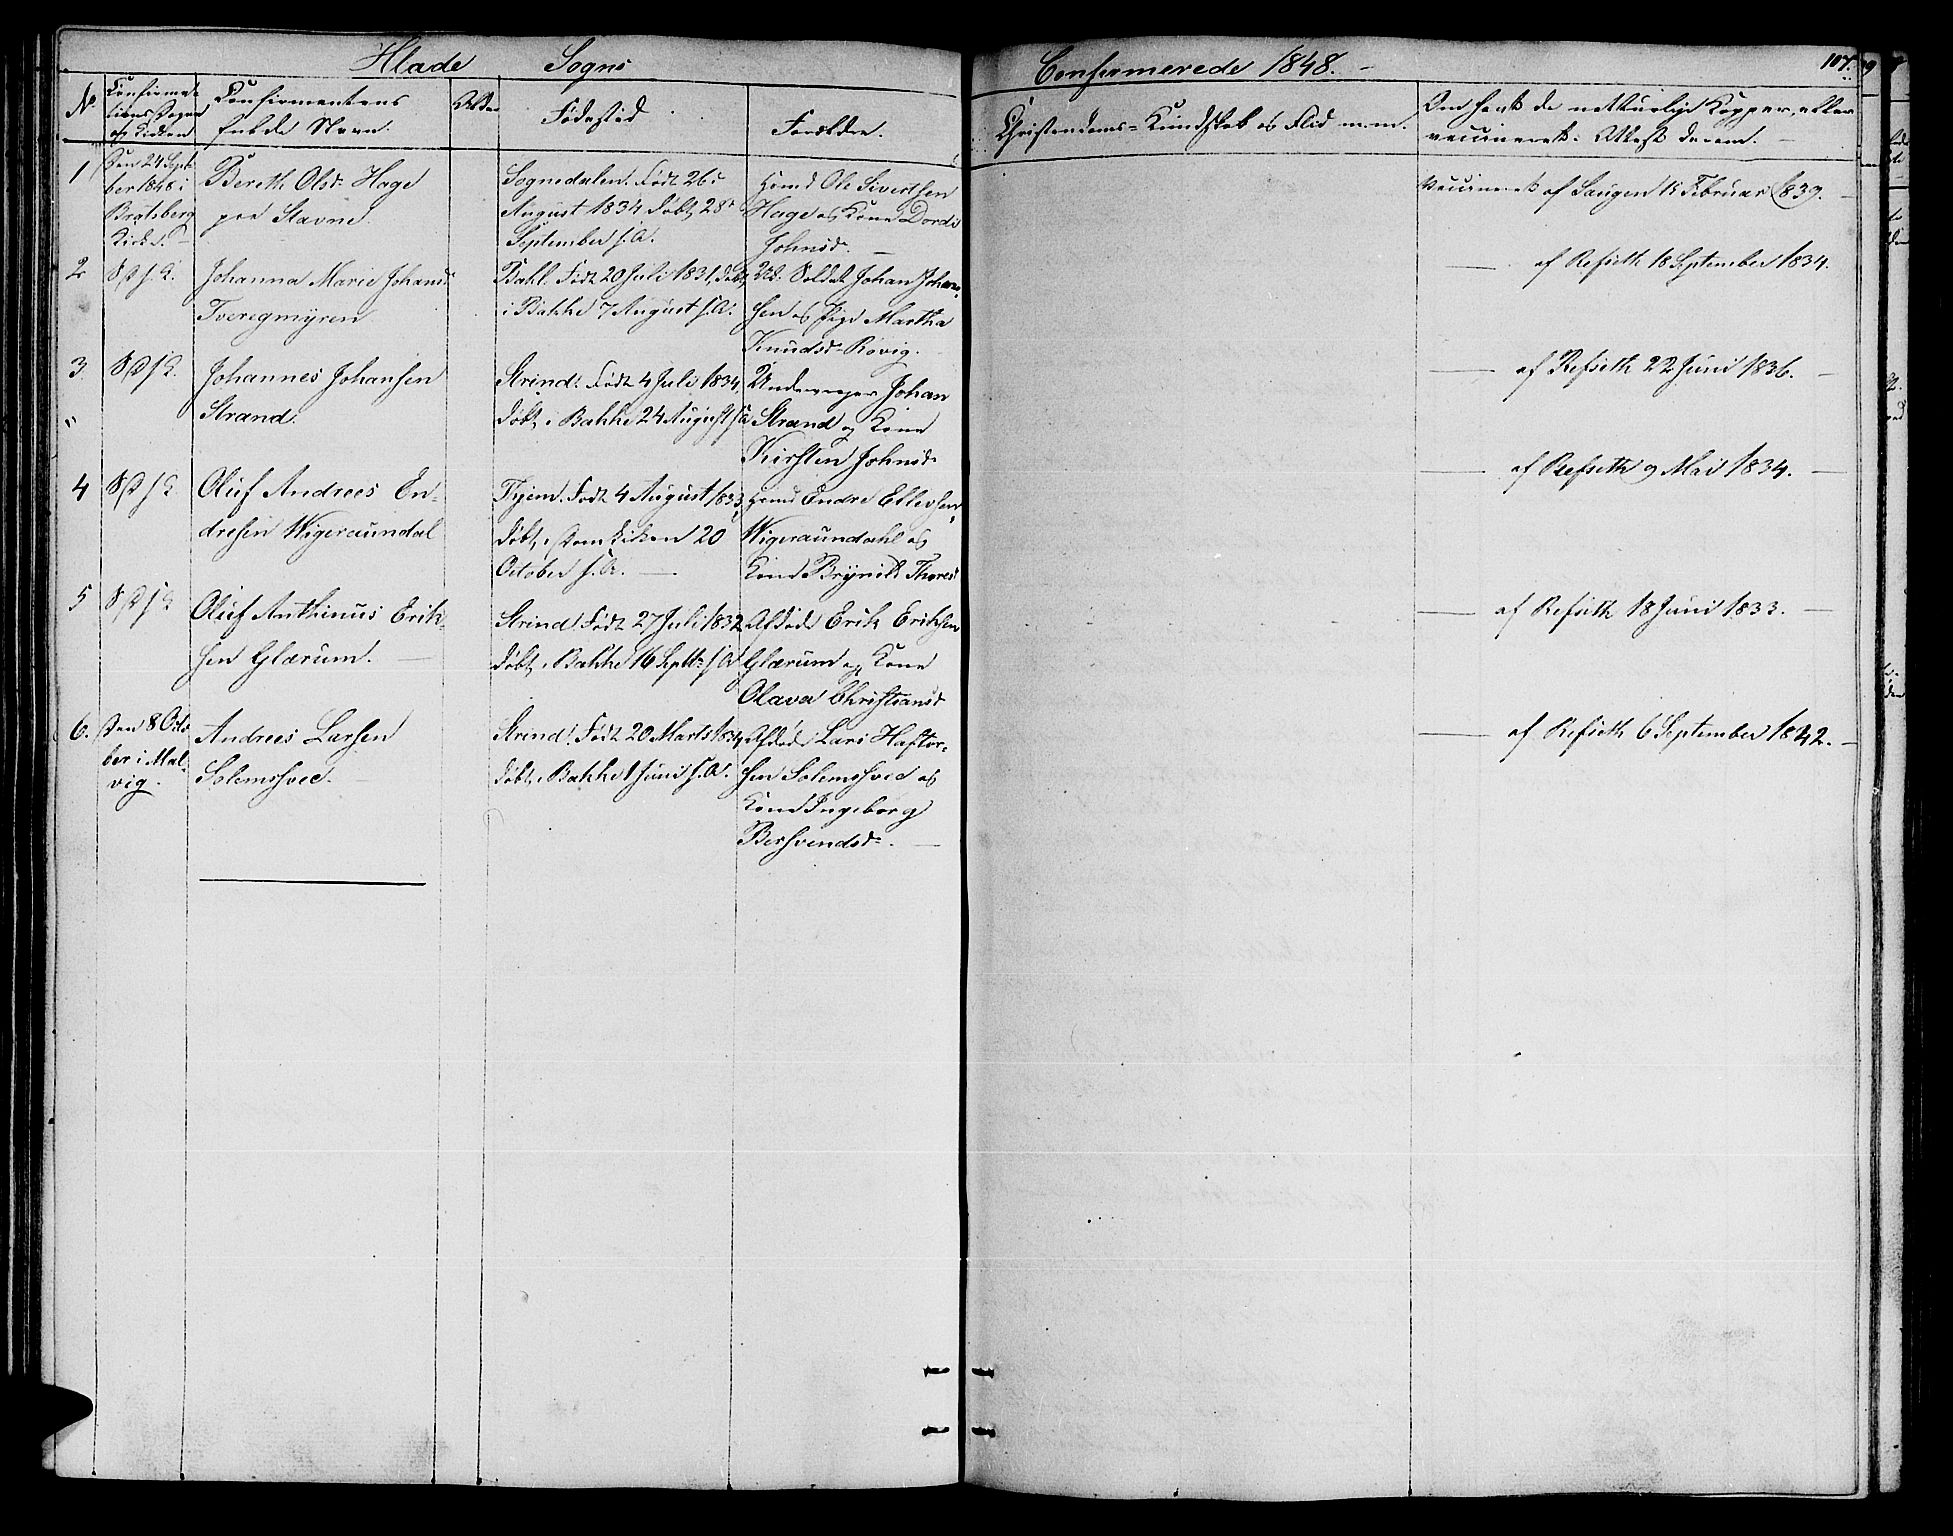 Hlade Sogns
Confirmerede 1848.
107.
No.
Confirma-
tions Dagen
og Kirken
Confirmantens
fulde Navn.
Alder
Fødested
Forældre.
Christendoms-Kundskab og Flid m.m.
Om havt de naturlige Kopper eller
vaccineret. Attest derom.
1
Den 24 Septem-
ber 1848 i
Bratsberg
Kirke.
Bereth Olsd. Hage
paa Stavne.
Sognedalen. Født 26de
August 1834 døbt 28de
September s.A.
Huusmd Ole Sivertsen
Hage og Kone Dordi
Johnsd.
Vaccineret af Saugen 15 Februar 1839.
2
S.D.s.K.
Johanna Marie Johansd.
Tveregmyren
Bakl. Født 20 Juli 1831, døbt
i Bakke 7 August s.A.
Ut. Soldat Johan Johan-
sen og Pige Martha
Knudsd. Røvig.
af Refseth 18 September 1834.
3
S.D.s.K.
Johannes Johansen
Strand.
Strind. Født 4 Juli 1834,
døbt i Bakke 24 August s.A
Johan
Strand og Kone
Kirsten Johnsd.
af Refseth 22 Juni 1836.
4
S.D.s.K.
Oluf Andreas En-
dresen Wigeraundal
Født 4 August 1833
døbt i Domkirken 20
October s.A.
Huusmd Endre Ellevsen
Wigeraundahl og
Kone Brynild Thoresd
af Refseth 9 Mai 1834.
5
S.D.s.K
Oluf Anthinus Erik-
sen Glærum.
Strind. Født 27 Juli 1832
døbt i Bakke 16 Septbr s.A
Afdøde Erik Eriksen
Glærum og Kone
Olava Christiansd
af Refseth 18 Juni 1833.
6.
Den 8 Octo-
ber i Mal-
vig.
Andreas Larsen
Solemshved.
Strind. Født 20 Marts 1834
døbt i Bakke 1 Juni s.A.
Afdøde Lars Haftor-
sen Solemshved og
Kone Ingeborg
Bersvendsd.
af Refseth 6 September 1842.